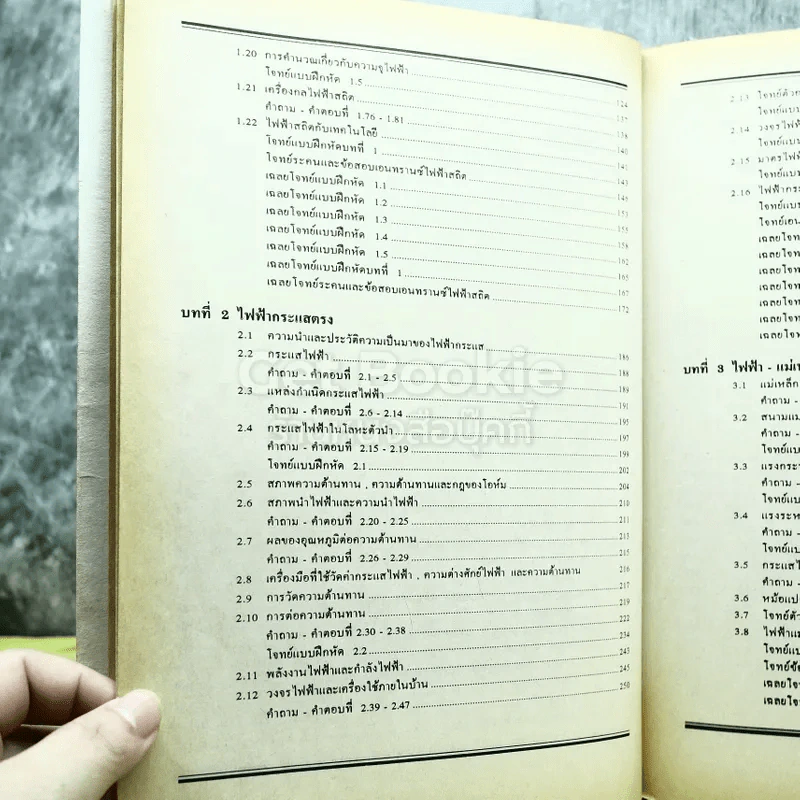 1.20 การคำนวณเกี่ยวกับความจุไฟฟ้า
โจทย์แบบฝึกหัด 1.5 124
1.21 เครื่องกลไฟฟ้าสถิต
คำถาม - คำตอบที่ 1.76 - 1.81
1.22 ไฟฟ้าสถิตกับเทคโนโลยี
โจทย์แบบฝึกหัดบทที่ 1
โจทย์ระคนและข้อสอบเอนทรานซ์ไฟฟ้าสถิต
เฉลยโจทย์แบบฝึกหัด 1.1
เฉลยโจทย์แบบฝึกหัด 1.2
เฉลยโจทย์แบบฝึกหัด 1.3
เฉลยโจทย์แบบฝึกหัด 1.4
เฉลยโจทย์แบบฝึกหัด 1.5
เฉลยโจทย์แบบฝึกหัดบทที่ 1
เฉลยโจทย์ระคนและข้อสอบเอนทรานซ์ไฟฟ้าสถิต 172
บทที่ 2 ไฟฟ้ากระแสตรง
2.1 ความนำและประวัติความเป็นมาของไฟฟ้ากระแส 186
2.2 กระแสไฟฟ้า 188
คำถาม - คำตอบที่ 2.1 - 2.5 189
2.3 แหล่งกำเนิดกระแสไฟฟ้า 191
คำถาม - คำตอบที่ 2.6 - 2.14 195
2.4 กระแสไฟฟ้าในโลหะตัวนำ 197
คำถาม - คำตอบที่ 2.15 - 2.19 199
โจทย์แบบฝึกหัด 2.1 202
2.5 สภาพความต้านทาน , ความต้านทานและกฎของโอห์ม 204
2.6 สภาพนำไฟฟ้าและความนำไฟฟ้า 210
คำถาม - คำตอบที่ 2.20 - 2.25 211
2.7 ผลของอุณหภูมิต่อความต้านทาน 213
คำถาม - คำตอบที่ 2.26 - 2.29 215
2.8 เครื่องมือที่ใช้วัดค่ากระแสไฟฟ้า , ความต่างศักย์ไฟฟ้า และความต้านทาน 216
2.9 การวัดความต้านทาน 217
2.10 การต่อความต้านทาน 219
คำถาม - คำตอบที่ 2.30 - 2.38 222
โจทย์แบบฝึกหัด 2.2 234
2.11 พลังงานไฟฟ้าและกำลังไฟฟ้า 243
2.12 วงจรไฟฟ้าและเครื่องใช้ภายในบ้าน 245
คำถาม - คำตอบที่ 2.39 - 2.47 250
Bookie
2.13 โจทย์ตัวย
โจทย์แบบ
2.14 วงจรไฟฟ้
โจทย์แบบ
2.15 มาตรไฟฟ้
โจทย์แบบ
2.16 ไฟฟ้ากระ
โจทย์แบบ
โจทย์เอน
เฉลยโจท
เฉลยโจท
เฉลยโจท
เฉลยโจท
เฉลยโจท
เฉลยโจท
เฉลยโจท
บทที่ 3 ไฟฟ้า - แม่เห
3.1 แม่เหล็ก
คำถาม -
3.2 สนามแม่
คำถาม -
โจทย์แบบ
3.3 แรงกระท
คำถาม -
โจทย์แบบ
3.4 แรงระหว
คำถาม -
โจทย์แบบ
3.5 กระแสไ
คำถาม -
3.6 หม้อแปล
3.7 โจทย์ตัว
3.8 ไฟฟ้าแม่
โจทย์แบบ
โจทย์ข้อ
เฉลยโจท
เฉลยโจท